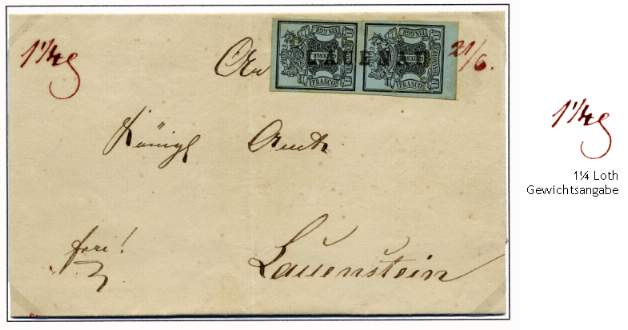 1¼ g
An LAUENAU 21/6.
Königl Amt
frei!
Lauenstein
1¼ g
1¼ Loth
Gewichtsangabe